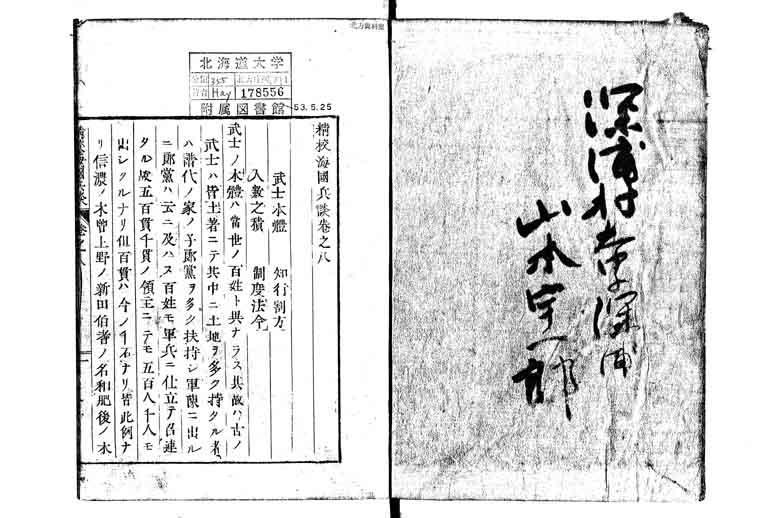 北方資料室
深浦村字深浦
山本宇一郎
北海道大学
355
Hay 178556
附属図書館
53.5.25
精校海國兵談卷之八
武士本體 知行割方
人數之積 制度法令
武士ノ本體ハ當世ノ百姓ト異ナラス其故ハ古ノ
武士ハ皆土著ニテ其中ニ土地ヲ多ク持タル者
ハ譜代ノ家ノ子郎黨ヲ多ク扶持シ軍陳ニ出ル
ニ郎黨ハ云ニ及ハス百姓モ軍兵ニ仕立テ召連
タル故五百貫千貫ノ領主ニテモ五百人千人モ
出シタルナリ但百貫ハ今ノ千石ナリ皆此例ナ
リ信濃ノ木曾上野ノ新田伯耆ノ名和肥後ノ木